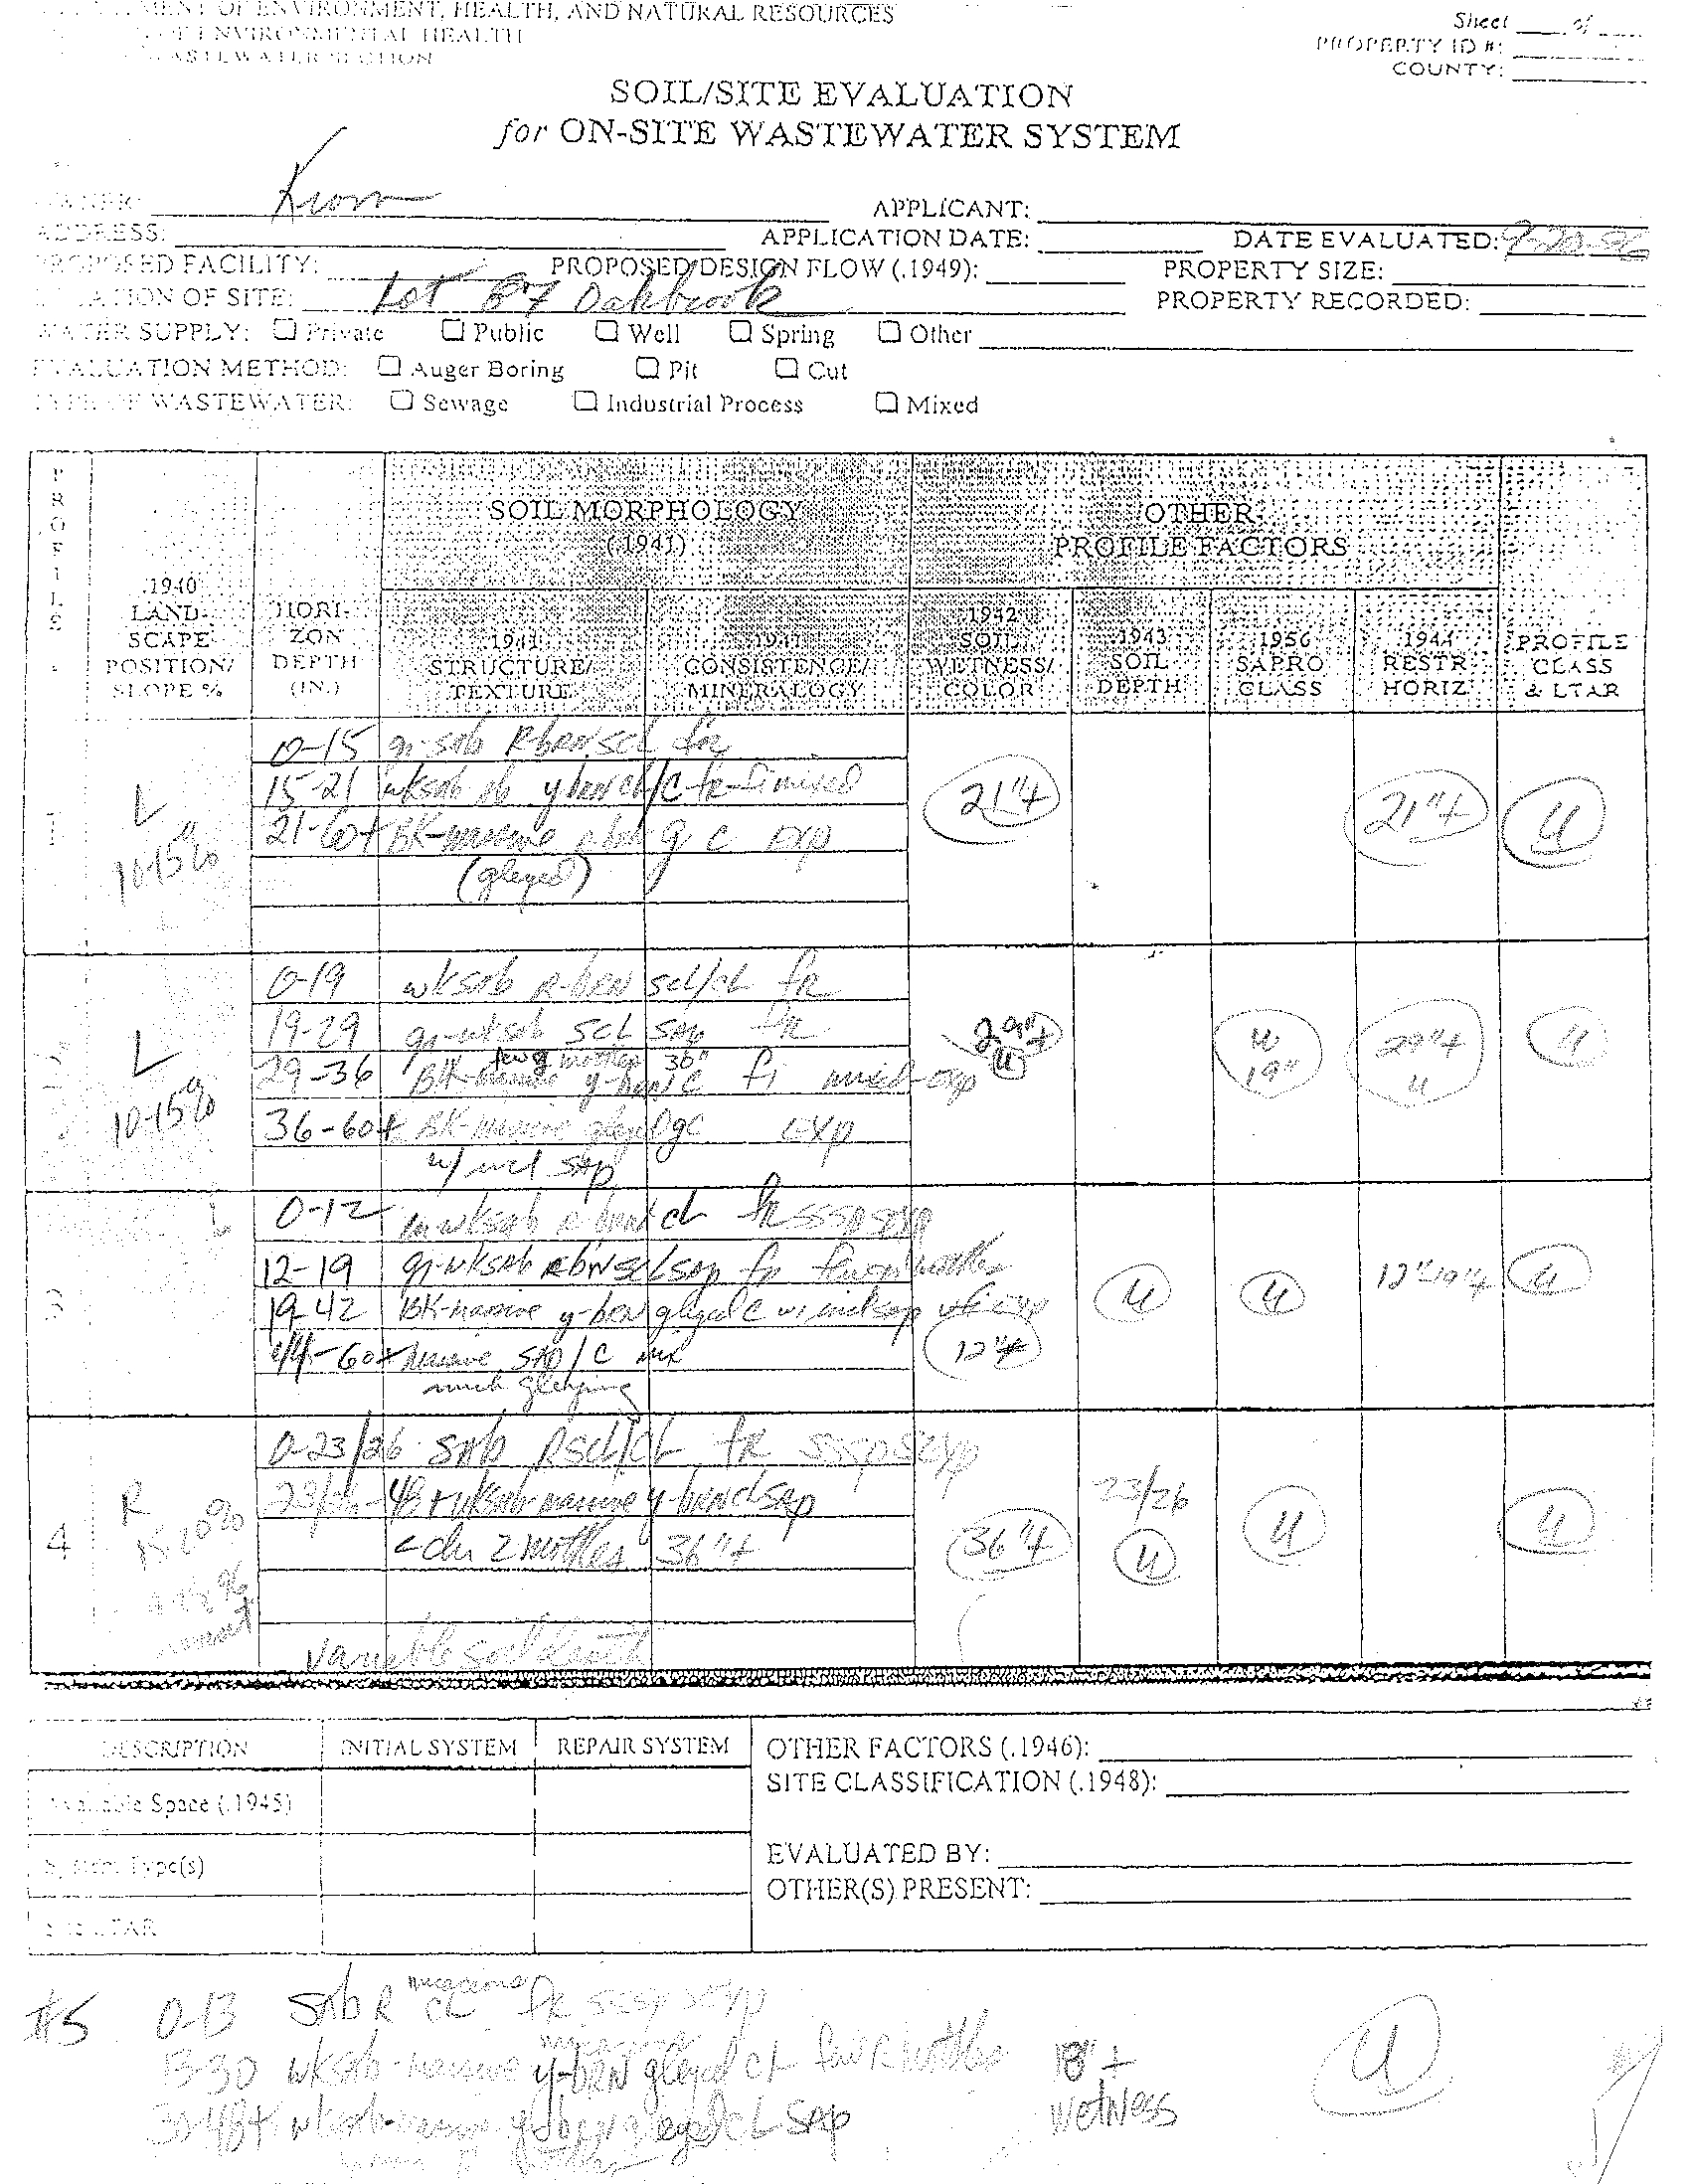 MENT OF ENVIRONMENT, HEALTH, AND NATURAL RESOURCES
OF ENVIRONMENTAL HEALTH
WASTEWATER SECTION
Sheet ___ of ___
PROPERTY ID #:
COUNTY:
SOIL/SITE EVALUATION
for ON-SITE WASTEWATER SYSTEM
OWNER: APPLICANT:
ADDRESS: APPLICATION DATE: DATE EVALUATED: 9-20-96
PROPOSED FACILITY: PROPOSED DESIGN FLOW (.1949): PROPERTY SIZE:
LOCATION OF SITE: Lot 87 Oakbrook PROPERTY RECORDED:
WATER SUPPLY: ☐ Private ☐ Public ☐ Well ☐ Spring ☐ Other
EVALUATION METHOD: ☐ Auger Boring ☐ Pit ☐ Cut
TYPE OF WASTEWATER: ☐ Sewage ☐ Industrial Process ☐ Mixed
PROFILE
.1940 LANDSCAPE POSITION/ SLOPE %
HORIZON DEPTH (IN.)
SOIL MORPHOLOGY (.1941)
.1941 STRUCTURE/ TEXTURE
.1941 CONSISTENCE/ MINERALOGY
OTHER PROFILE FACTORS
.1942 SOIL WETNESS/ COLOR
.1943 SOIL DEPTH
.1956 SAPRO CLASS
.1944 RESTR HORIZ
PROFILE CLASS & LTAR
1 L 10-15%
0-15 gr-sab R-brn scl fr
15-21 wksab y-brn cl/c fr-fi mixed
21-60+ BK-massive g c exp
(gleyed)
21"+ 21"+ U
L 10-15%
0-19 wksab R-brn scl/cl fr
19-29 gr-wksab scl sap fr
few g mottles 36"
29-36 BK-massive y-brn c fi mixed-exp
36-60+ BK-massive gleyed gc exp
w/ incl sap
29"+ U U 19" 29"+ U U
3 L
0-12 wksab R-brn cl fr sssp sexp
12-19 gr-wksab R-brn scl sap fr few mottles
19-42 BK-massive y-brn gleyed c w/ incl sap exp
-60+ massive sap/c mix
much gleying
12"+ U U 12"-19"+ U
4 R 15-20%
0-23/26 sab R scl/cl fr sssp sexp
23/26-48+ wksab-massive y-brn cl sap
2 mottles 36"+
variable soil depth
36"+ 23/26 U U U
DESCRIPTION INITIAL SYSTEM REPAIR SYSTEM
Available Space (.1945)
System Type(s)
Site LTAR
OTHER FACTORS (.1946):
SITE CLASSIFICATION (.1948):
EVALUATED BY:
OTHER(S) PRESENT:
#5 0-13 sab R micaceous cl fr sssp sexp
13-30 wksab-massive y-brn gleyed cl few R mottles 18"+ wetness U
30-48+ wksab-massive y-brn gleyed cl sap